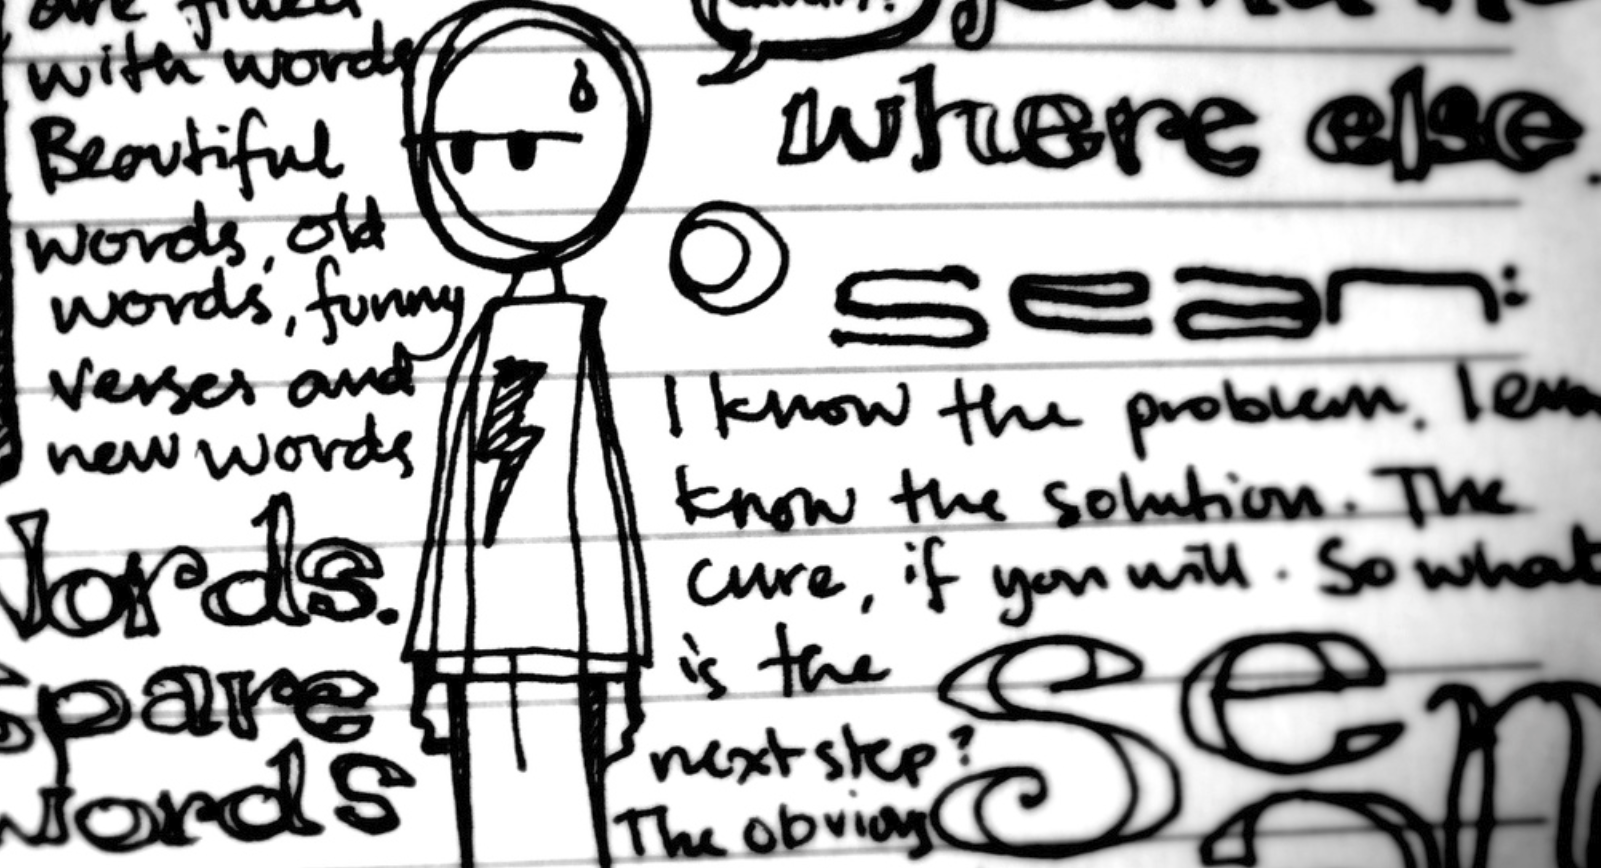 with words
Beautiful
words, old
words, funny
verses and
new words
Words.
spare
words
where else
sean:
I know the problem. I even
know the solution. The
cure, if you will. So what
is the
next step?
The obvious
sen